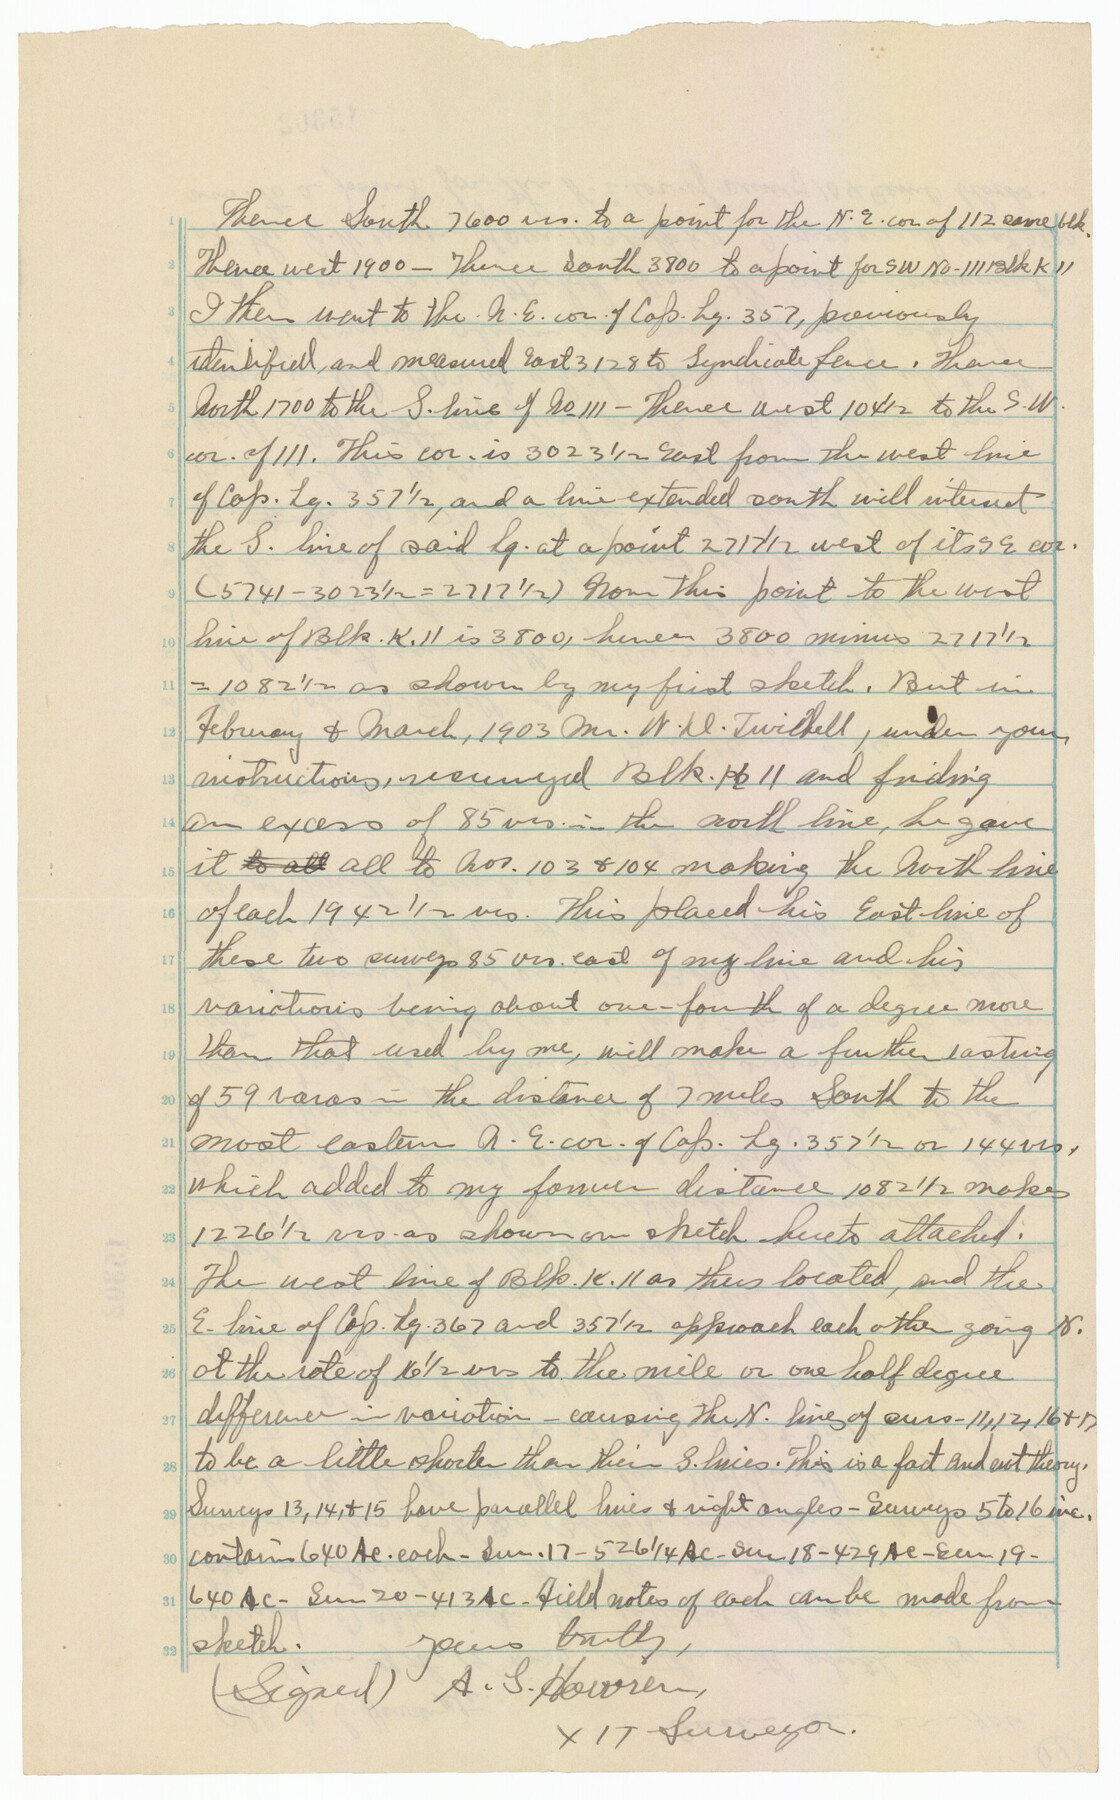 Thence South 7600 vrs. to a point for the N. E. cor of 112 same blk.
Thence west 1900 — Thence South 3800 to a point for SW No-111 Blk K 11
I then went to the N. E. cor. of Cap. Lg. 357, previously
identified, and measured East 3128 to Syndicate fence. Thence
North 1700 to the S. line of No 111 — Thence west 104 1/2 to the S. W.
cor. of 111. This cor. is 3023 1/2 East from the west line
of Cap. Lg. 357 1/2, and a line extended south will intersect
the S. line of said Lg. at a point 2717 1/2 west of its S E cor.
(5741 - 3023 1/2 = 2717 1/2) From this point to the west
line of Blk. K. 11 is 3800, hence 3800 minus 2717 1/2
= 1082 1/2 as shown by my first sketch. But in
February & March, 1903 Mr. W. D. Twichell, under your
instructions, resurveyed Blk. K 11 and finding
an excess of 85 vrs. in the north line, he gave
it to all all to Nos. 103 & 104 making the North line
of each 1942 1/2 vrs. This placed his East line of
these two surveys 85 vrs. east of my line and his
variations being about one-fourth of a degree more
than that used by me, will make a further easting
of 59 varas in the distance of 7 miles South to the
most eastern N. E. cor. of Cap. Lg. 357 1/2 or 144 vrs,
which added to my former distance 1082 1/2 makes
1226 1/2 vrs. as shown on sketch hereto attached.
The west line of Blk. K. 11 as thus located, and the
E. line of Cap. Lg. 367 and 357 1/2 approach each other going N.
at the rate of 16 1/2 vrs to the mile or one half degree
difference in variation — causing the N. lines of surs - 11, 12, 16 & 17
to be a little shorter than their S. lines. This is a fact and not theory.
Surveys 13, 14, & 15 have parallel lines & right angles — Surveys 5 to 16 inc.
contains 640 Ac. each — Sur. 17 - 526 1/4 Ac - Sur 18 - 429 Ac - Sur 19 -
640 Ac - Sur 20 - 413 Ac - Field notes of each can be made from
sketch. Yours truly,
(Signed) A. S. Howren,
X I T Surveyor.